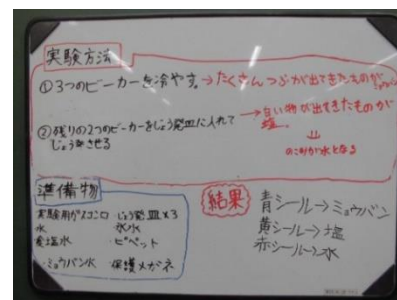 実験方法
①3つのビーカーを冷やす。→たくさんつぶが出てきたものが
②残りの2つのビーカーをじょう発皿に入れて
じょう発させる
→白い物が出てきたものが
塩。
⇓
のこりが水となる
準備物
実験用ガスコンロ ・じょう発皿×3
水 氷水
食塩水 ・ピペット
・ミョウバン水 ・保護メガネ
結果
青シール→ミョウバン
黄シール→塩
赤シール→水